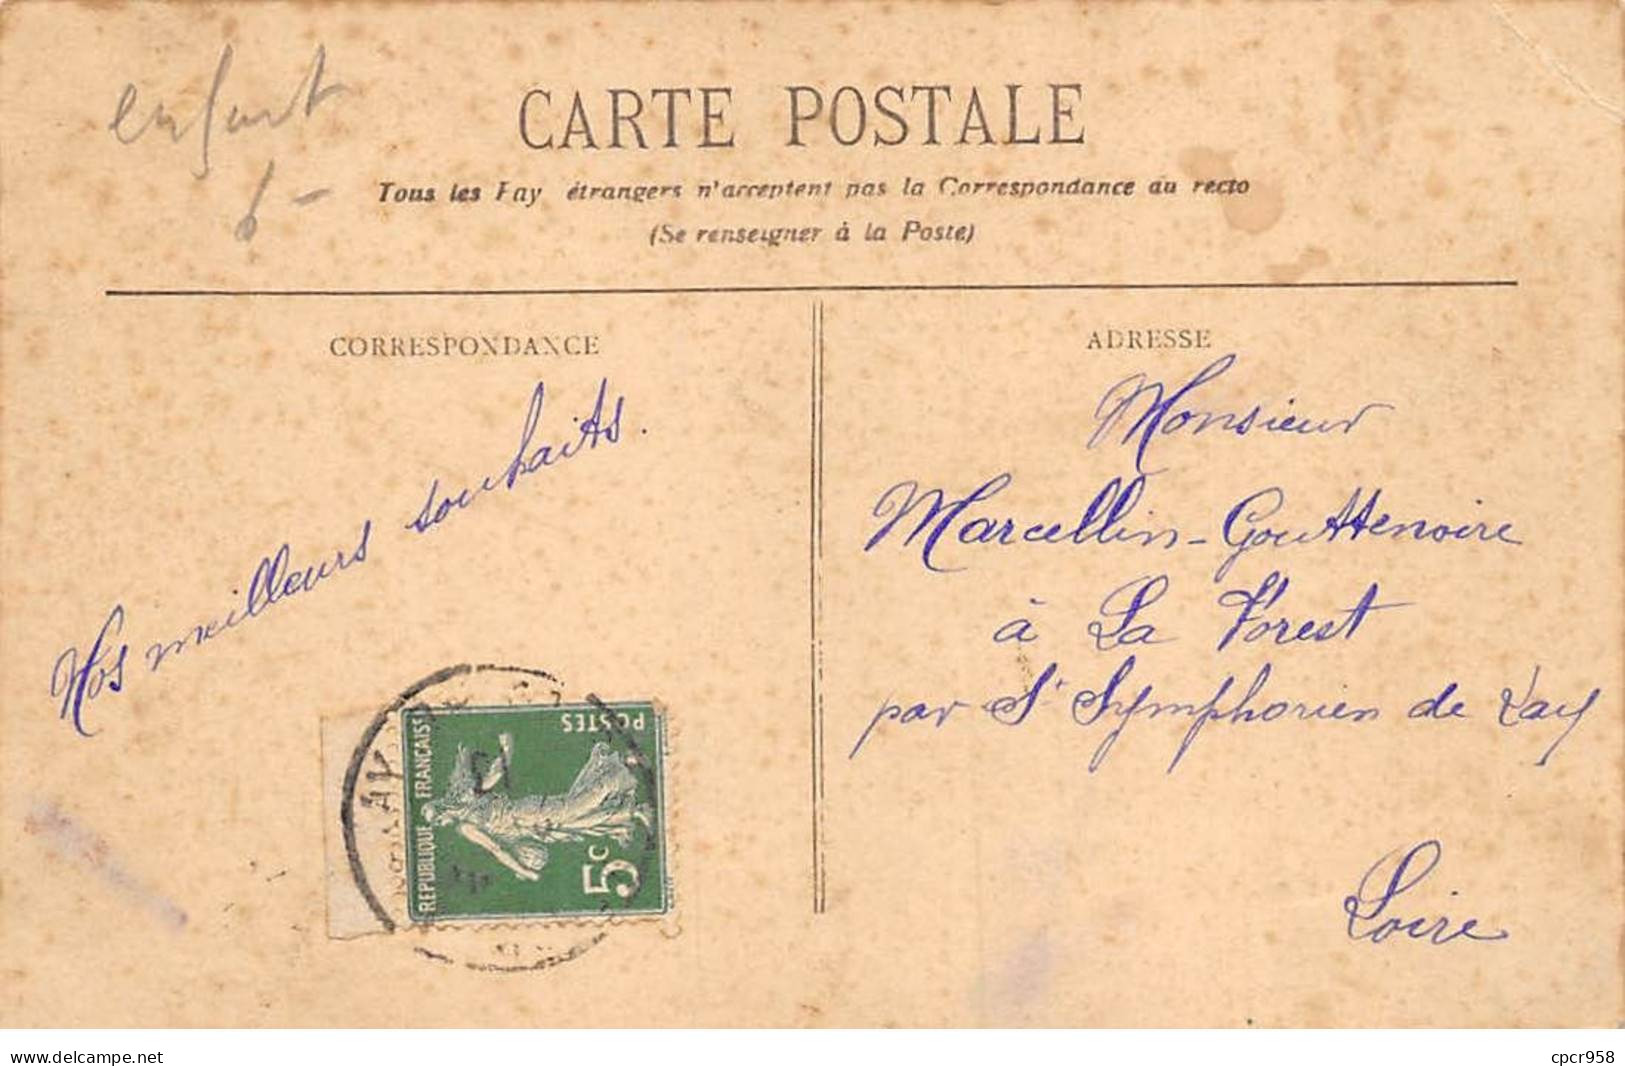 enfant
6-
CARTE POSTALE
Tous les Pay étrangers n'acceptent pas la Correspondance au recto
(Se renseigner à la Poste)
CORRESPONDANCE
Nos meilleurs souhaits.
ADRESSE
Monsieur
Marcellin-Gouttenoire
à La Forest
par St Symphorien de Lay
Loire
REPUBLIQUE FRANÇAISE
POSTES
5c
delcampe.net
cpcr958